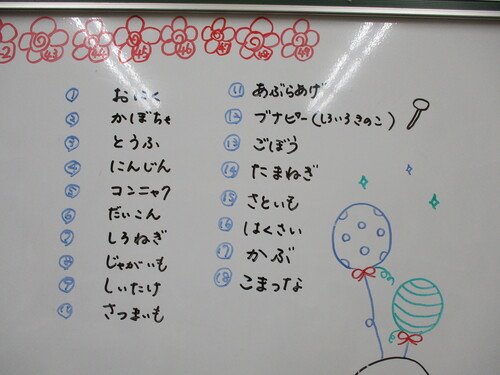 42 43 44 45 46 47 48 49
① おにく
② かぼちゃ
③ とうふ
④ にんじん
⑤ コンニャク
⑥ だいこん
⑦ しろねぎ
⑧ じゃがいも
⑨ しいたけ
⑩ さつまいも
⑪ あぶらあげ
⑫ ブナピー(しろいろきのこ)
⑬ ごぼう
⑭ たまねぎ
⑮ さといも
⑯ はくさい
⑰ かぶ
⑱ こまつな